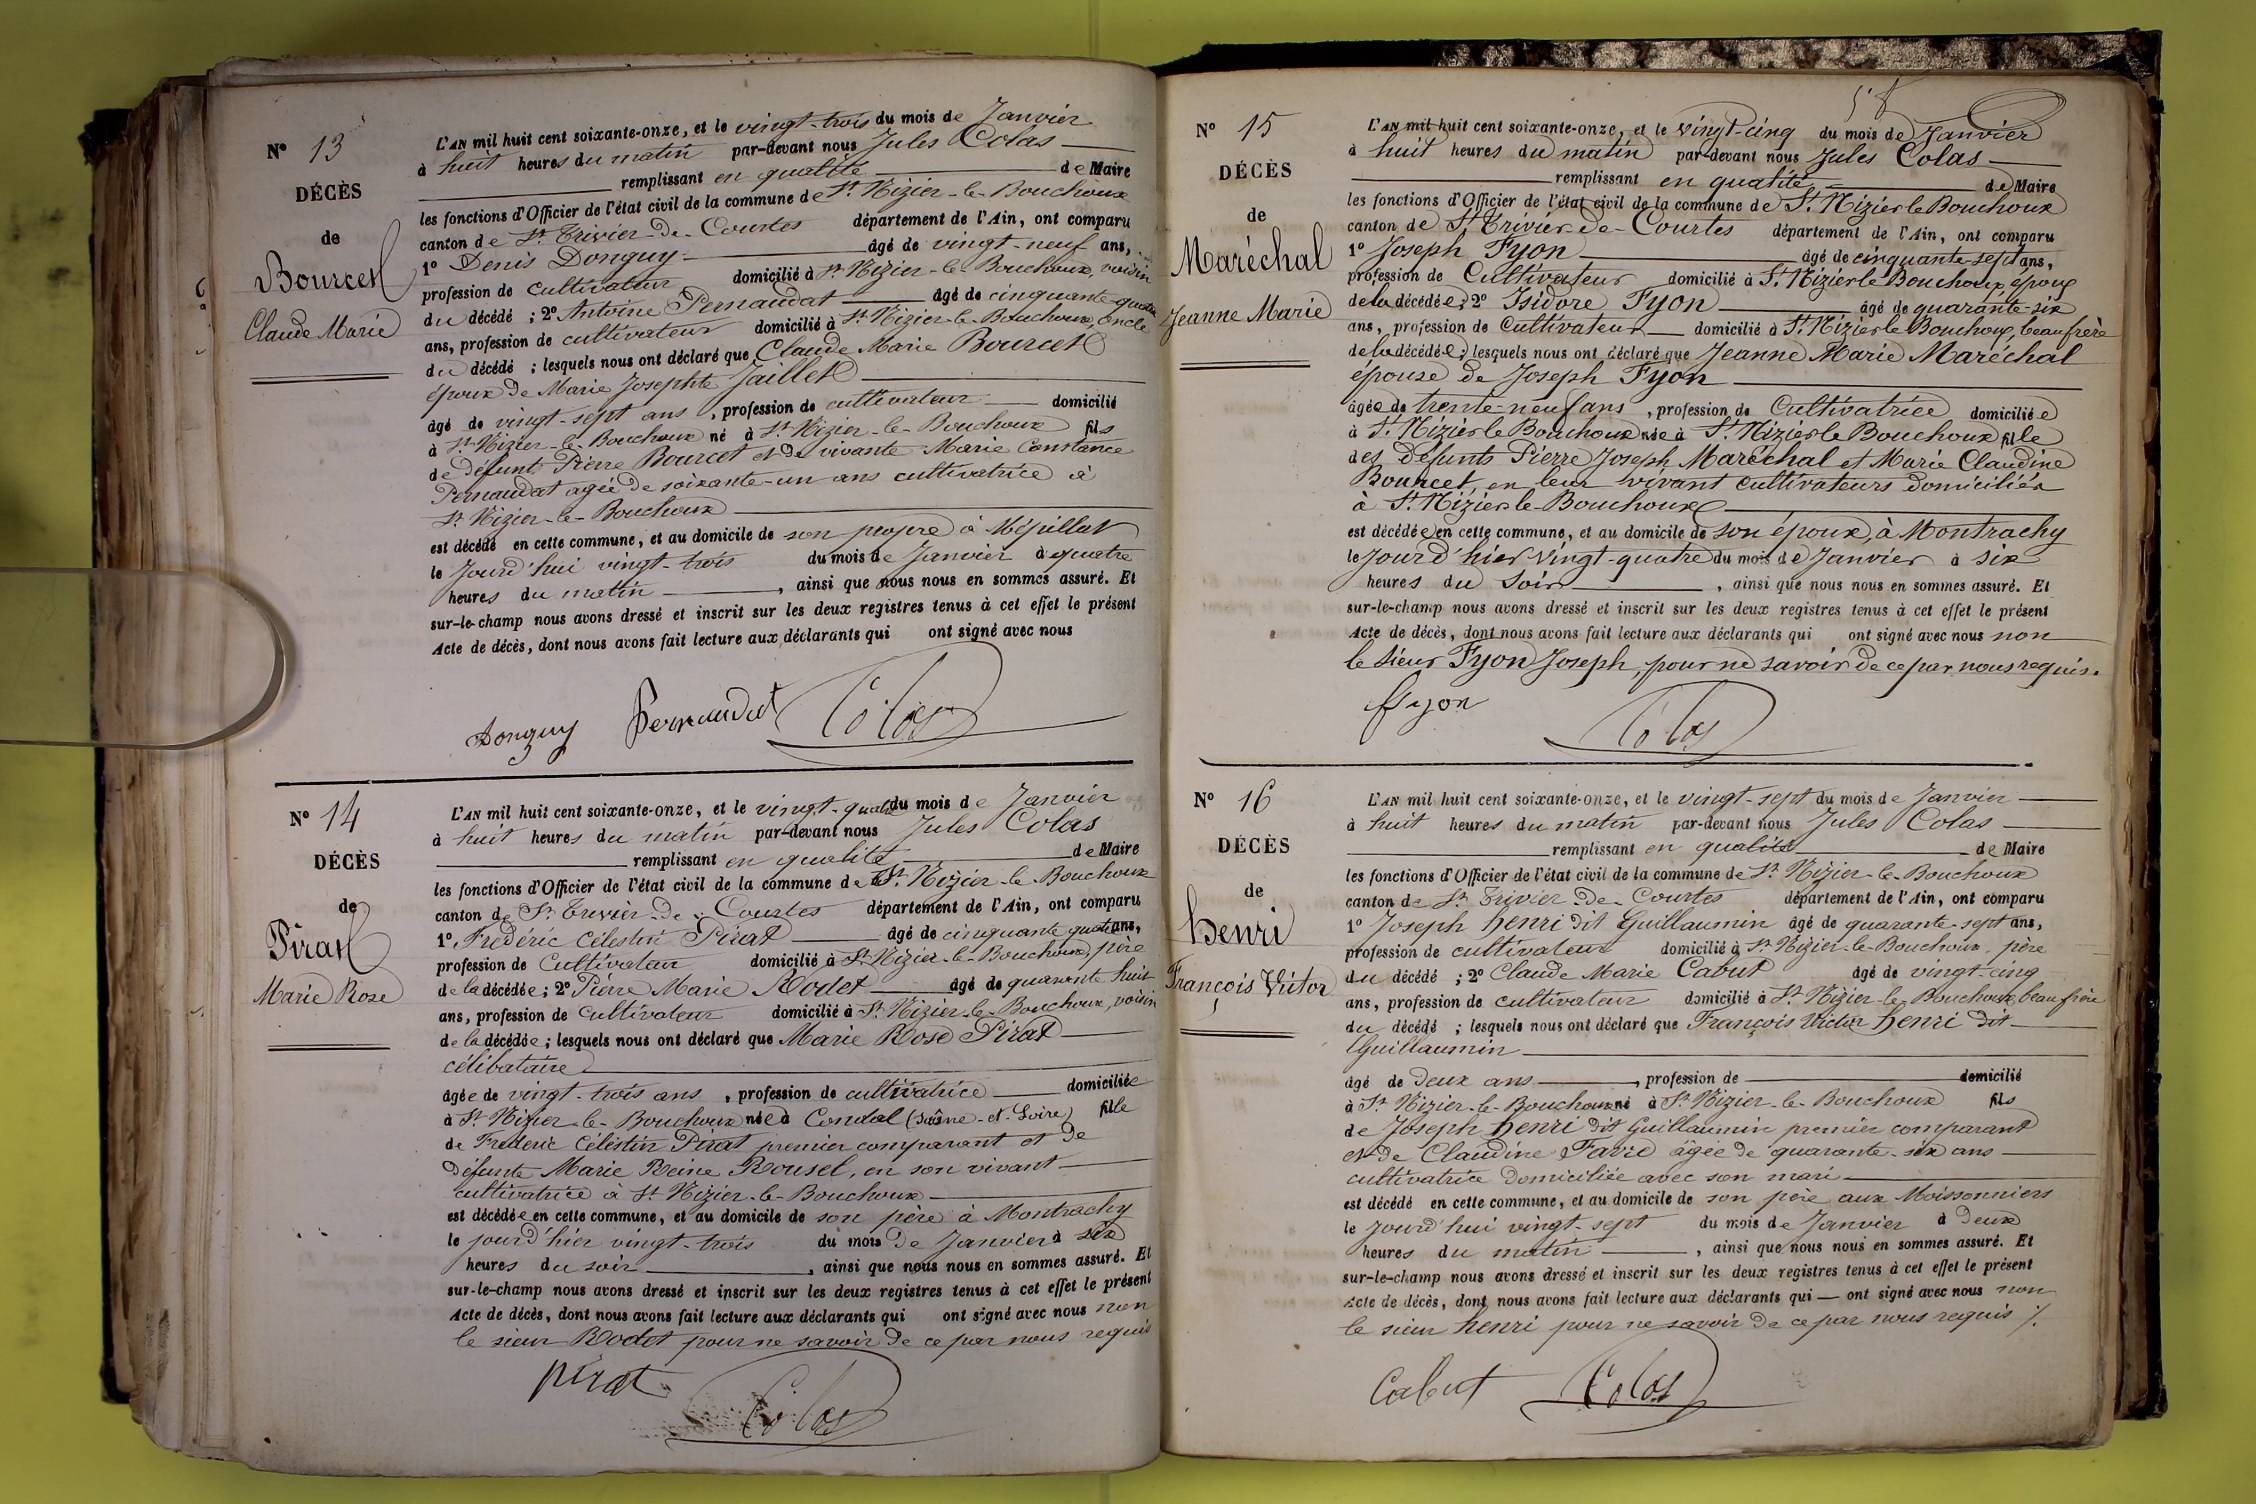 Nº 13
DÉCÈS
de
Bourcet
Claude Marie
L'AN mil huit cent soixante-onze, et le vingt-trois du mois de Janvier
à huit heures du matin par-devant nous Jules Colas
remplissant en qualité de Maire
les fonctions d'Officier de l'état civil de la commune de St Nizier-le-Bouchoux
canton de St Trivier-de-Courtes département de l'Ain, ont comparu
1º Denis Donguy âgé de vingt-neuf ans,
profession de cultivateur domicilié à St Nizier-le-Bouchoux, voisin
du décédé ; 2º Antoine Pernaudat âgé de cinquante-quatre
ans, profession de cultivateur domicilié à St Nizier-le-Bouchoux, oncle
du décédé ; lesquels nous ont déclaré que Claude Marie Bourcet
époux de Marie Josephte Jaillet
âgé de vingt-sept ans, profession de cultivateur domicilié
à St Nizier-le-Bouchoux né à St Nizier-le-Bouchoux fils
de défunt Pierre Bourcet et de vivante Marie Constance
Pernaudat agée de soixante-un ans cultivatrice à
St Nizier-le-Bouchoux
est décédé en cette commune, et au domicile de son propre à Mépillat
le jourd'hui vingt-trois du mois de Janvier à quatre
heures du matin, ainsi que nous nous en sommes assuré. Et
sur-le-champ nous avons dressé et inscrit sur les deux registres tenus à cet effet le présent
Acte de décès, dont nous avons fait lecture aux déclarants qui ont signé avec nous
Donguy Pernaudat Colas
Nº 14
DÉCÈS
de
Pirat
Marie Rose
L'AN mil huit cent soixante-onze, et le vingt-quatre du mois de Janvier
à huit heures du matin par-devant nous Jules Colas
remplissant en qualité de Maire
les fonctions d'Officier de l'état civil de la commune de St Nizier-le-Bouchoux
canton de St Trivier-de-Courtes département de l'Ain, ont comparu
1º Frédéric Célestin Pirat âgé de cinquante quatre ans,
profession de Cultivateur domicilié à St Nizier-le-Bouchoux, père
de la décédée ; 2º Pierre Marie Rodet âgé de quarante huit
ans, profession de Cultivateur domicilié à St Nizier-le-Bouchoux, voisin
de la décédée ; lesquels nous ont déclaré que Marie Rose Pirat
célibataire
âgée de vingt-trois ans, profession de cultivatrice domiciliée
à St Nizier-le-Bouchoux née à Condal (Saône-et-Loire) fille
de Frédéric Célestin Pirat premier comparant et de
défunte Marie Reine Rousel, en son vivant
cultivatrice à St Nizier-le-Bouchoux
est décédée en cette commune, et au domicile de son père à Montrachy
le jourd'hier vingt-trois du mois de Janvier à six
heures du soir, ainsi que nous nous en sommes assuré. Et
sur-le-champ nous avons dressé et inscrit sur les deux registres tenus à cet effet le présent
Acte de décès, dont nous avons fait lecture aux déclarants qui ont signé avec nous non
le sieur Rodet pour ne savoir de ce par nous requis
pirat Colas
58
Nº 15
DÉCÈS
de
Maréchal
Jeanne Marie
L'AN mil huit cent soixante-onze, et le vingt-cinq du mois de Janvier
à huit heures du matin par-devant nous Jules Colas
remplissant en qualité de Maire
les fonctions d'Officier de l'état civil de la commune de St Nizier le Bouchoux
canton de St Trivier-de-Courtes département de l'Ain, ont comparu
1º Joseph Fyon âgé de cinquante-sept ans,
profession de Cultivateur domicilié à St Nizier le Bouchoux, époux
de la décédée ; 2º Isidore Fyon âgé de quarante-six
ans, profession de Cultivateur domicilié à St Nizier le Bouchoux, beau frère
de la décédée ; lesquels nous ont déclaré que Jeanne Marie Maréchal
épouse de Joseph Fyon
âgée de trente-neuf ans, profession de Cultivatrice domiciliée
à St Nizier le Bouchoux née à St Nizier le Bouchoux fille
des défunts Pierre Joseph Maréchal et Marie Claudine
Bourcet, en leur vivant cultivateurs domiciliés
à St Nizier le-Bouchoux
est décédée en cette commune, et au domicile de son époux, à Montrachy
le Jourd'hier vingt-quatre du mois de Janvier à six
heures du soir, ainsi que nous nous en sommes assuré. Et
sur-le-champ nous avons dressé et inscrit sur les deux registres tenus à cet effet le présent
Acte de décès, dont nous avons fait lecture aux déclarants qui ont signé avec nous non
le sieur Fyon Joseph, pour ne savoir de ce par nous requis.
Fyon Colas
Nº 16
DÉCÈS
de
henri
François Victor
L'AN mil huit cent soixante-onze, et le vingt-sept du mois de Janvier
à huit heures du matin par-devant nous Jules Colas
remplissant en qualité de Maire
les fonctions d'Officier de l'état civil de la commune de St Nizier-le-Bouchoux
canton de St Trivier-de-Courtes département de l'Ain, ont comparu
1º Joseph henri dit Guillaumin âgé de quarante-sept ans,
profession de cultivateur domicilié à St Nizier-le-Bouchoux, père
du décédé ; 2º Claude Marie Cabut âgé de vingt-cinq
ans, profession de cultivateur domicilié à St Nizier-le-Bouchoux, beau frère
du décédé ; lesquels nous ont déclaré que François Victor henri dit
Guillaumin
âgé de deux ans, profession de domicilié
à St Nizier-le-Bouchoux né à St Nizier-le-Bouchoux fils
de Joseph henri dit Guillaumin premier comparant
et de Claudine Favre âgée de quarante-six ans
cultivatrice domiciliée avec son mari
est décédé en cette commune, et au domicile de son père aux Moissonniers
le jourd'hui vingt-sept du mois de Janvier à deux
heures du matin, ainsi que nous nous en sommes assuré. Et
sur-le-champ nous avons dressé et inscrit sur les deux registres tenus à cet effet le présent
Acte de décès, dont nous avons fait lecture aux déclarants qui — ont signé avec nous non
le sieur henri pour ne savoir de ce par nous requis ./.
Cabut Colas